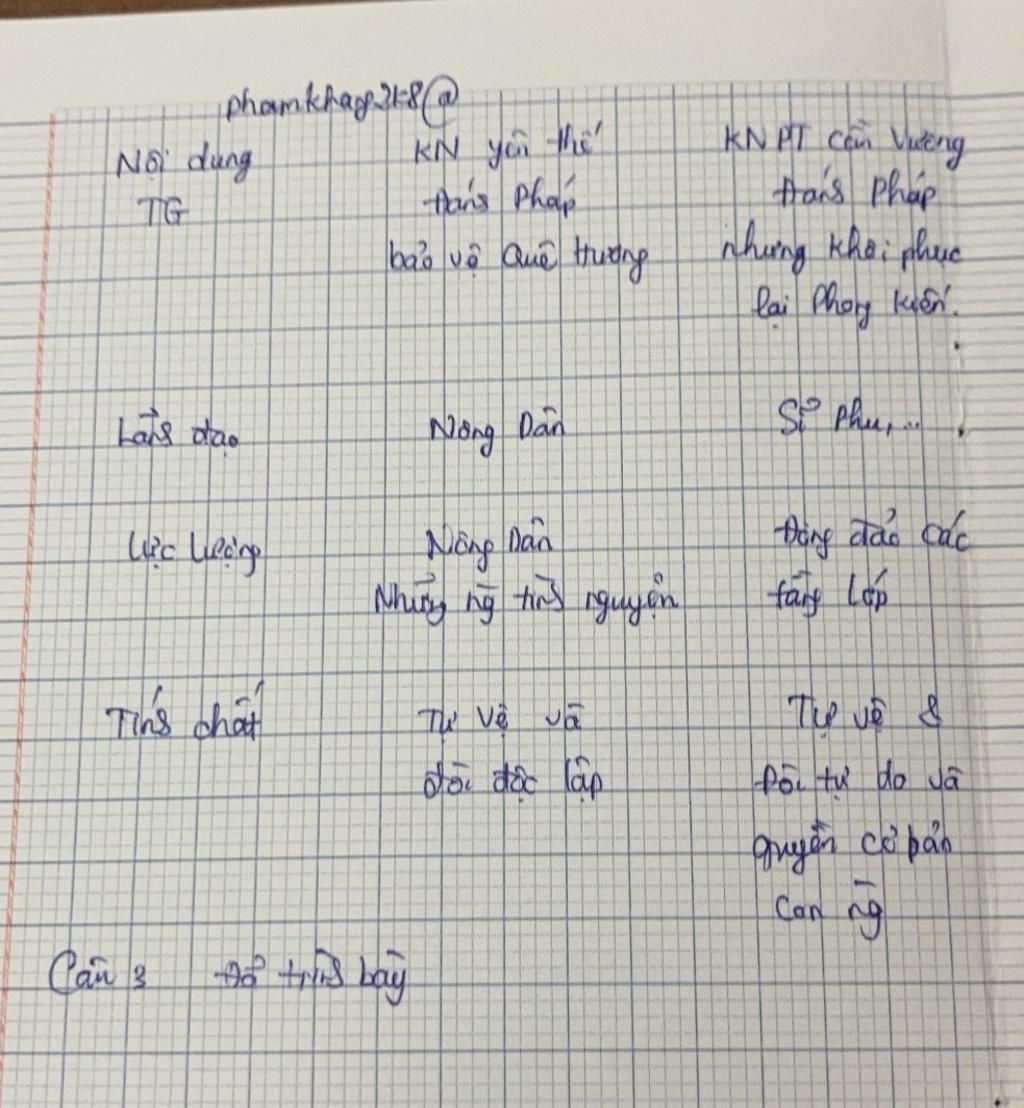 phamkhag2k8@
Nội dung KN yên thế KN PT Cần Vương
TG Đánh Pháp Đánh Pháp
bảo vệ Quê Hương nhưng khôi phục
lại Phong kiến.
Lãnh đạo Nông Dân Sĩ Phu,...
Lực lượng Nông Dân Đông đảo các
Những ng tình nguyện tầng lớp
Tính chất Tự vệ và Tự vệ &
đòi độc lập Đòi tự do và
quyền cơ bản
con ng
Câu 3 Đã trình bày